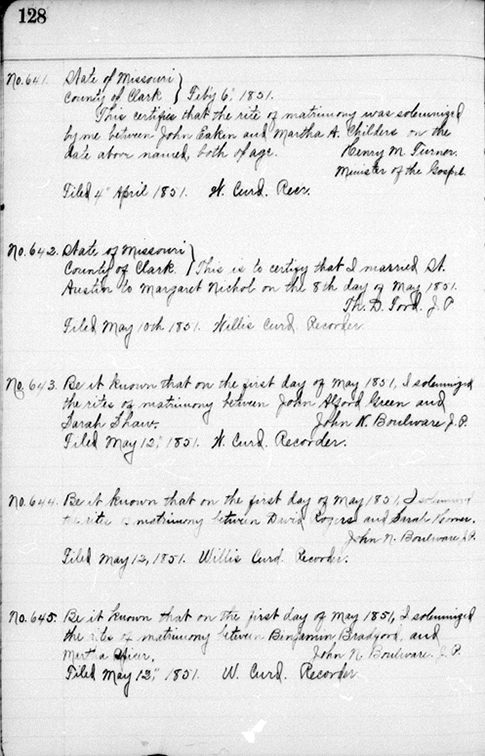 128
No. 641. State of Missouri }
County of Clark } Feb'y 6", 1851.
This certifies that the rite of matrimony was solemnized
by me between John Eakin and Martha A. Childers on the
date above named, both of age. Henry M. Turner.
Minister of the Gospel.
Filed 4" April 1851. W. Curd. Recr.
No. 642. State of Missouri }
County of Clark. } This is to certify that I married St.
Austin to Margaret Nichol on the 8th day of May 1851.
Th. D. Ford. J. P.
Filed May 10th 1851. Willis Curd. Recorder.
No. 643. Be it known that on the first day of May 1851, I solemnized
the rites of matrimony between John Alford Green and
Sarah Shaw. John N. Boulware J. P.
Filed May 12," 1851. W. Curd. Recorder.
No. 644. Be it known that on the first day of May 1851, I solemnized
the rites of matrimony between David Rogers and Sarah
John N. Boulware J. P.
Filed May 12, 1851. Willis Curd. Recorder.
No. 645. Be it known that on the first day of May 1851, I solemnized
the rites of matrimony between Benjamin Bradford, and
John N. Boulware J. P.
Filed May 12," 1851. W. Curd. Recorder